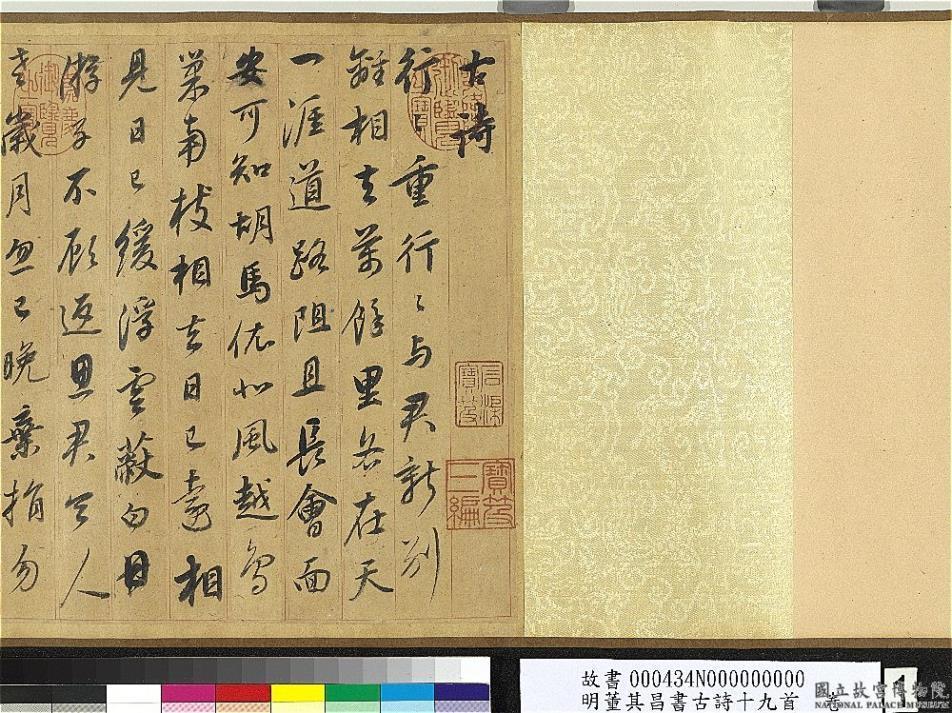 古詩
行〻重行〻与君新別
離相去萬餘里各在天
一涯道路阻且長會面
安可知胡馬依北風越鳥
巢南枝相去日已遠相
見日已緩浮雲蔽白日
游子不顧返思君令人
老歲月忽已晚棄捐勿
石渠寶笈
寶笈三編
故書 000434N000000000
明董其昌書古詩十九首 卷
1
國立故宮博物院
NATIONAL PALACE MUSEUM